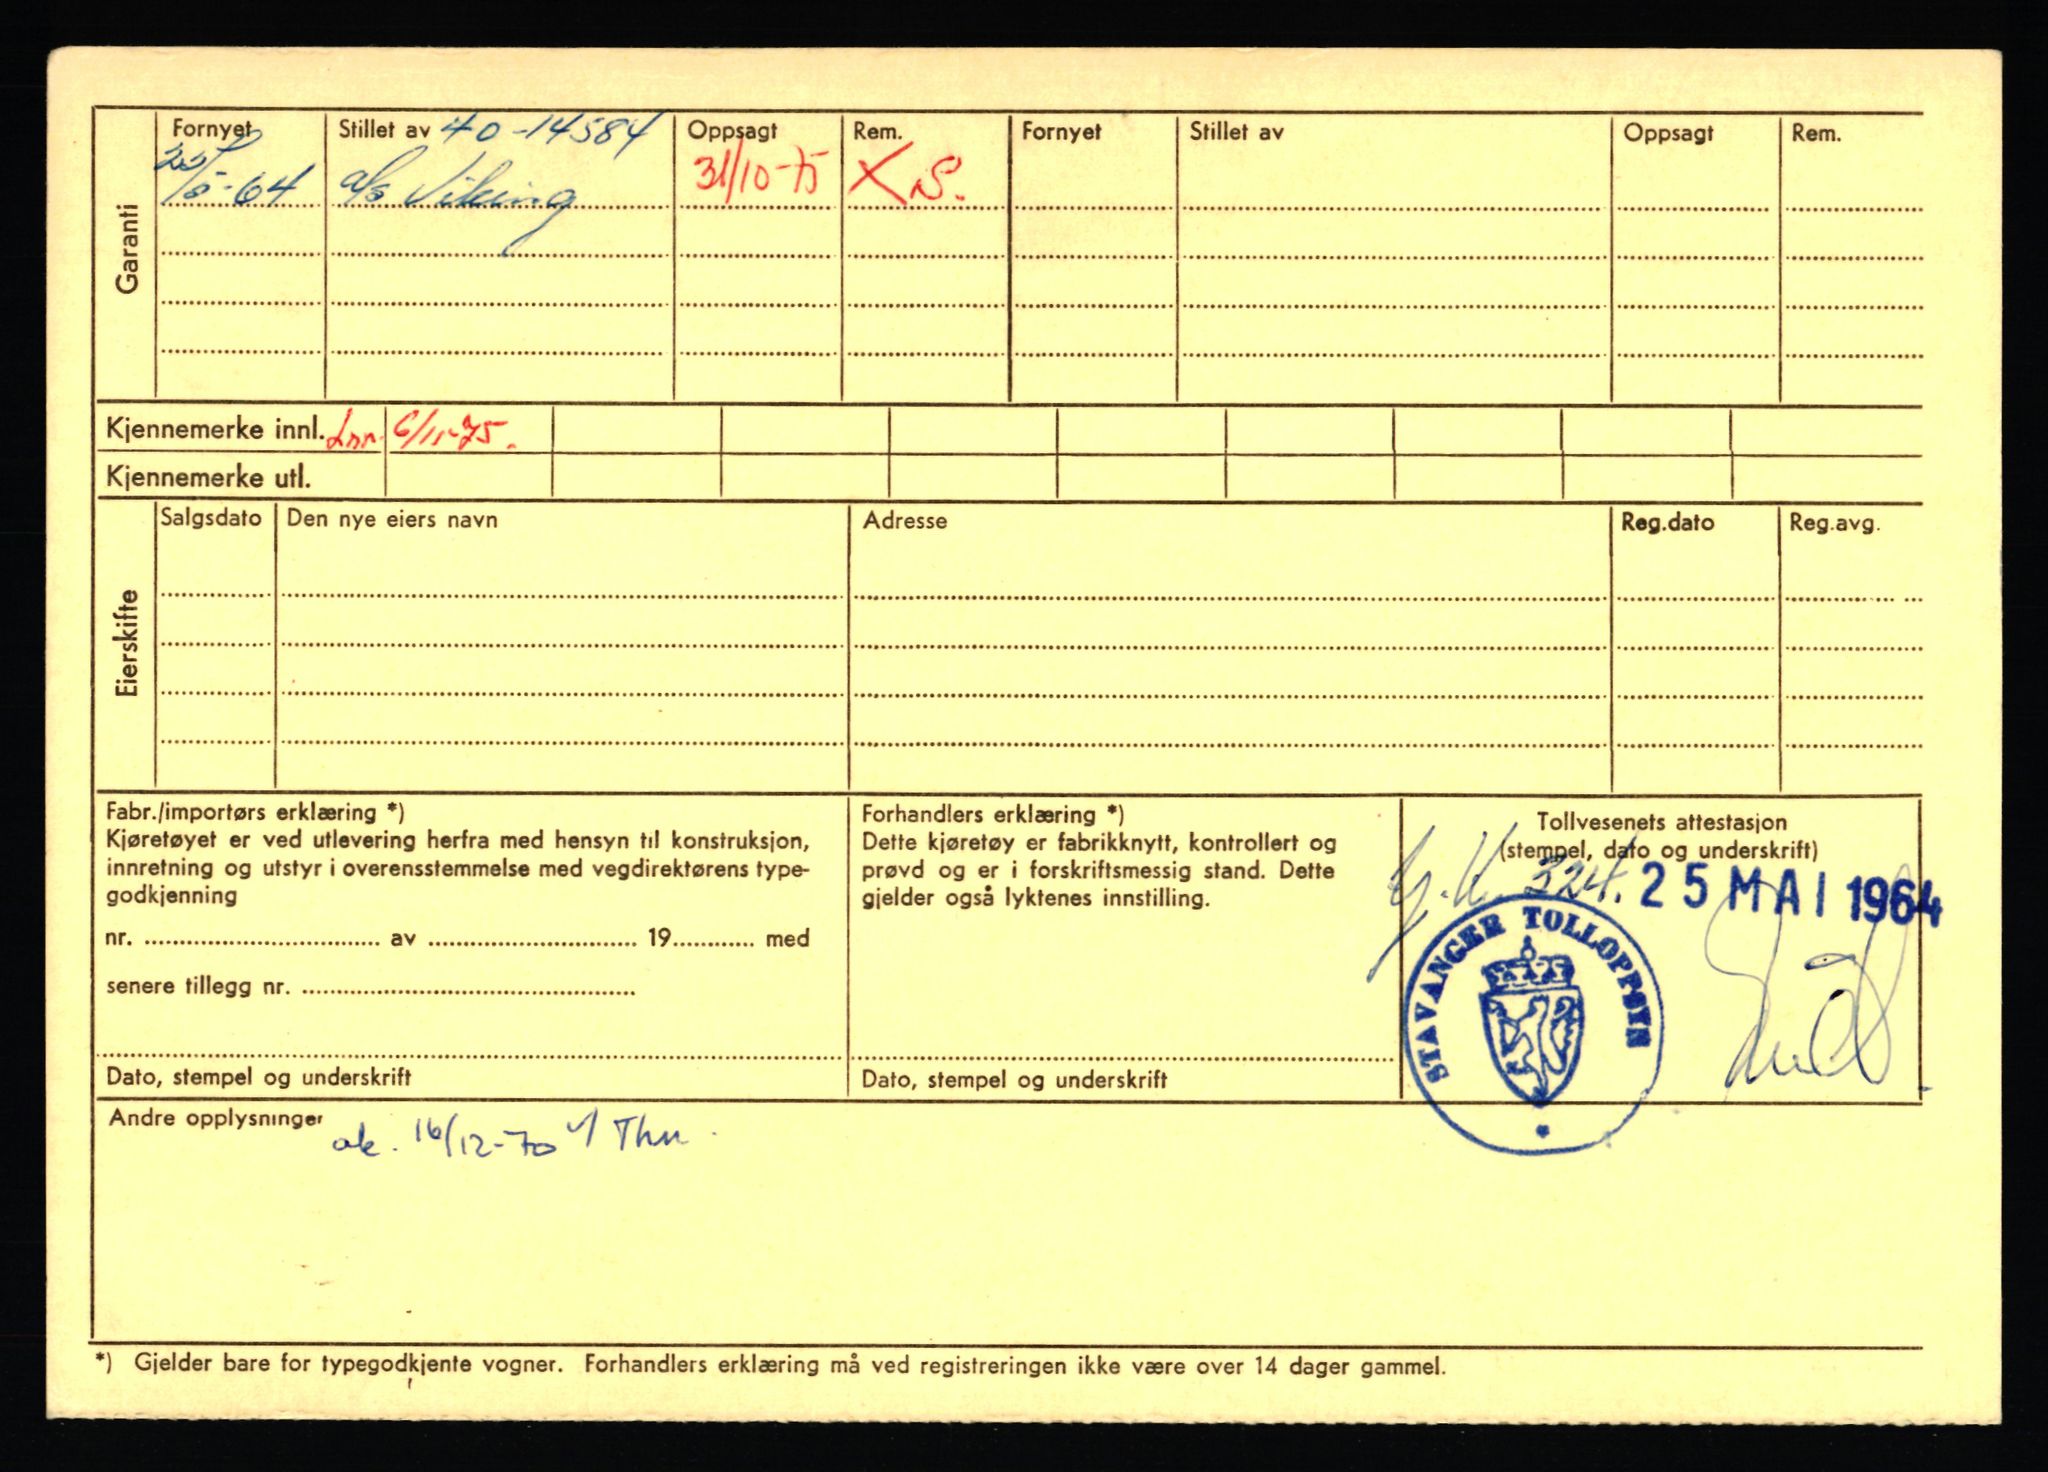 Garanti
Fornyet Stillet av 40-14584 Oppsagt Rem. Fornyet Stillet av Oppsagt Rem.
25/5-64 a/s Viking 31/10-75 X S.
Kjennemerke innl. Inn. 6/11-75.
Kjennemerke utl.
Eierskifte
Salgsdato Den nye eiers navn Adresse Reg.dato Reg.avg.
Fabr./importørs erklæring *)
Kjøretøyet er ved utlevering herfra med hensyn til konstruksjon,
innretning og utstyr i overensstemmelse med vegdirektørens type-
godkjenning
nr. av 19 med
senere tillegg nr.
Dato, stempel og underskrift
Forhandlers erklæring *)
Dette kjøretøy er fabrikknytt, kontrollert og
prøvd og er i forskriftsmessig stand. Dette
gjelder også lyktenes innstilling.
Dato, stempel og underskrift
Tollvesenets attestasjon
(stempel, dato og underskrift)
324. 25 MAI 1964
STAVANGER TOLLOPPSYN
Andre opplysninger
ok. 16/12-70
*) Gjelder bare for typegodkjente vogner. Forhandlers erklæring må ved registreringen ikke være over 14 dager gammel.